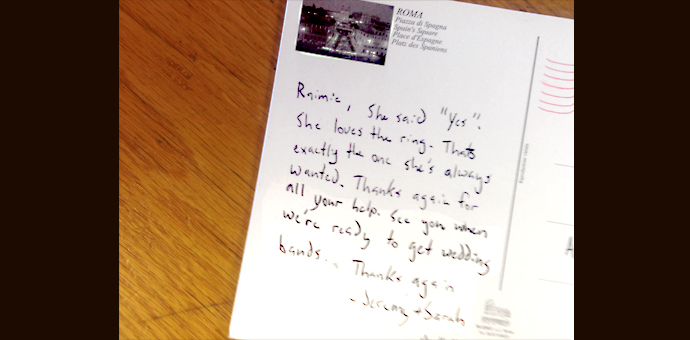 ROMA
Piazza di Spagna
Spain's Square
Place d'Espagne
Platz des Spaniens
Raimie, She said "Yes".
She loves the ring. Thats
exactly the one she's always
wanted. Thanks again for
all your help. See you when
we're ready to get wedding
bands... Thanks again
- Jeremy + Sarah